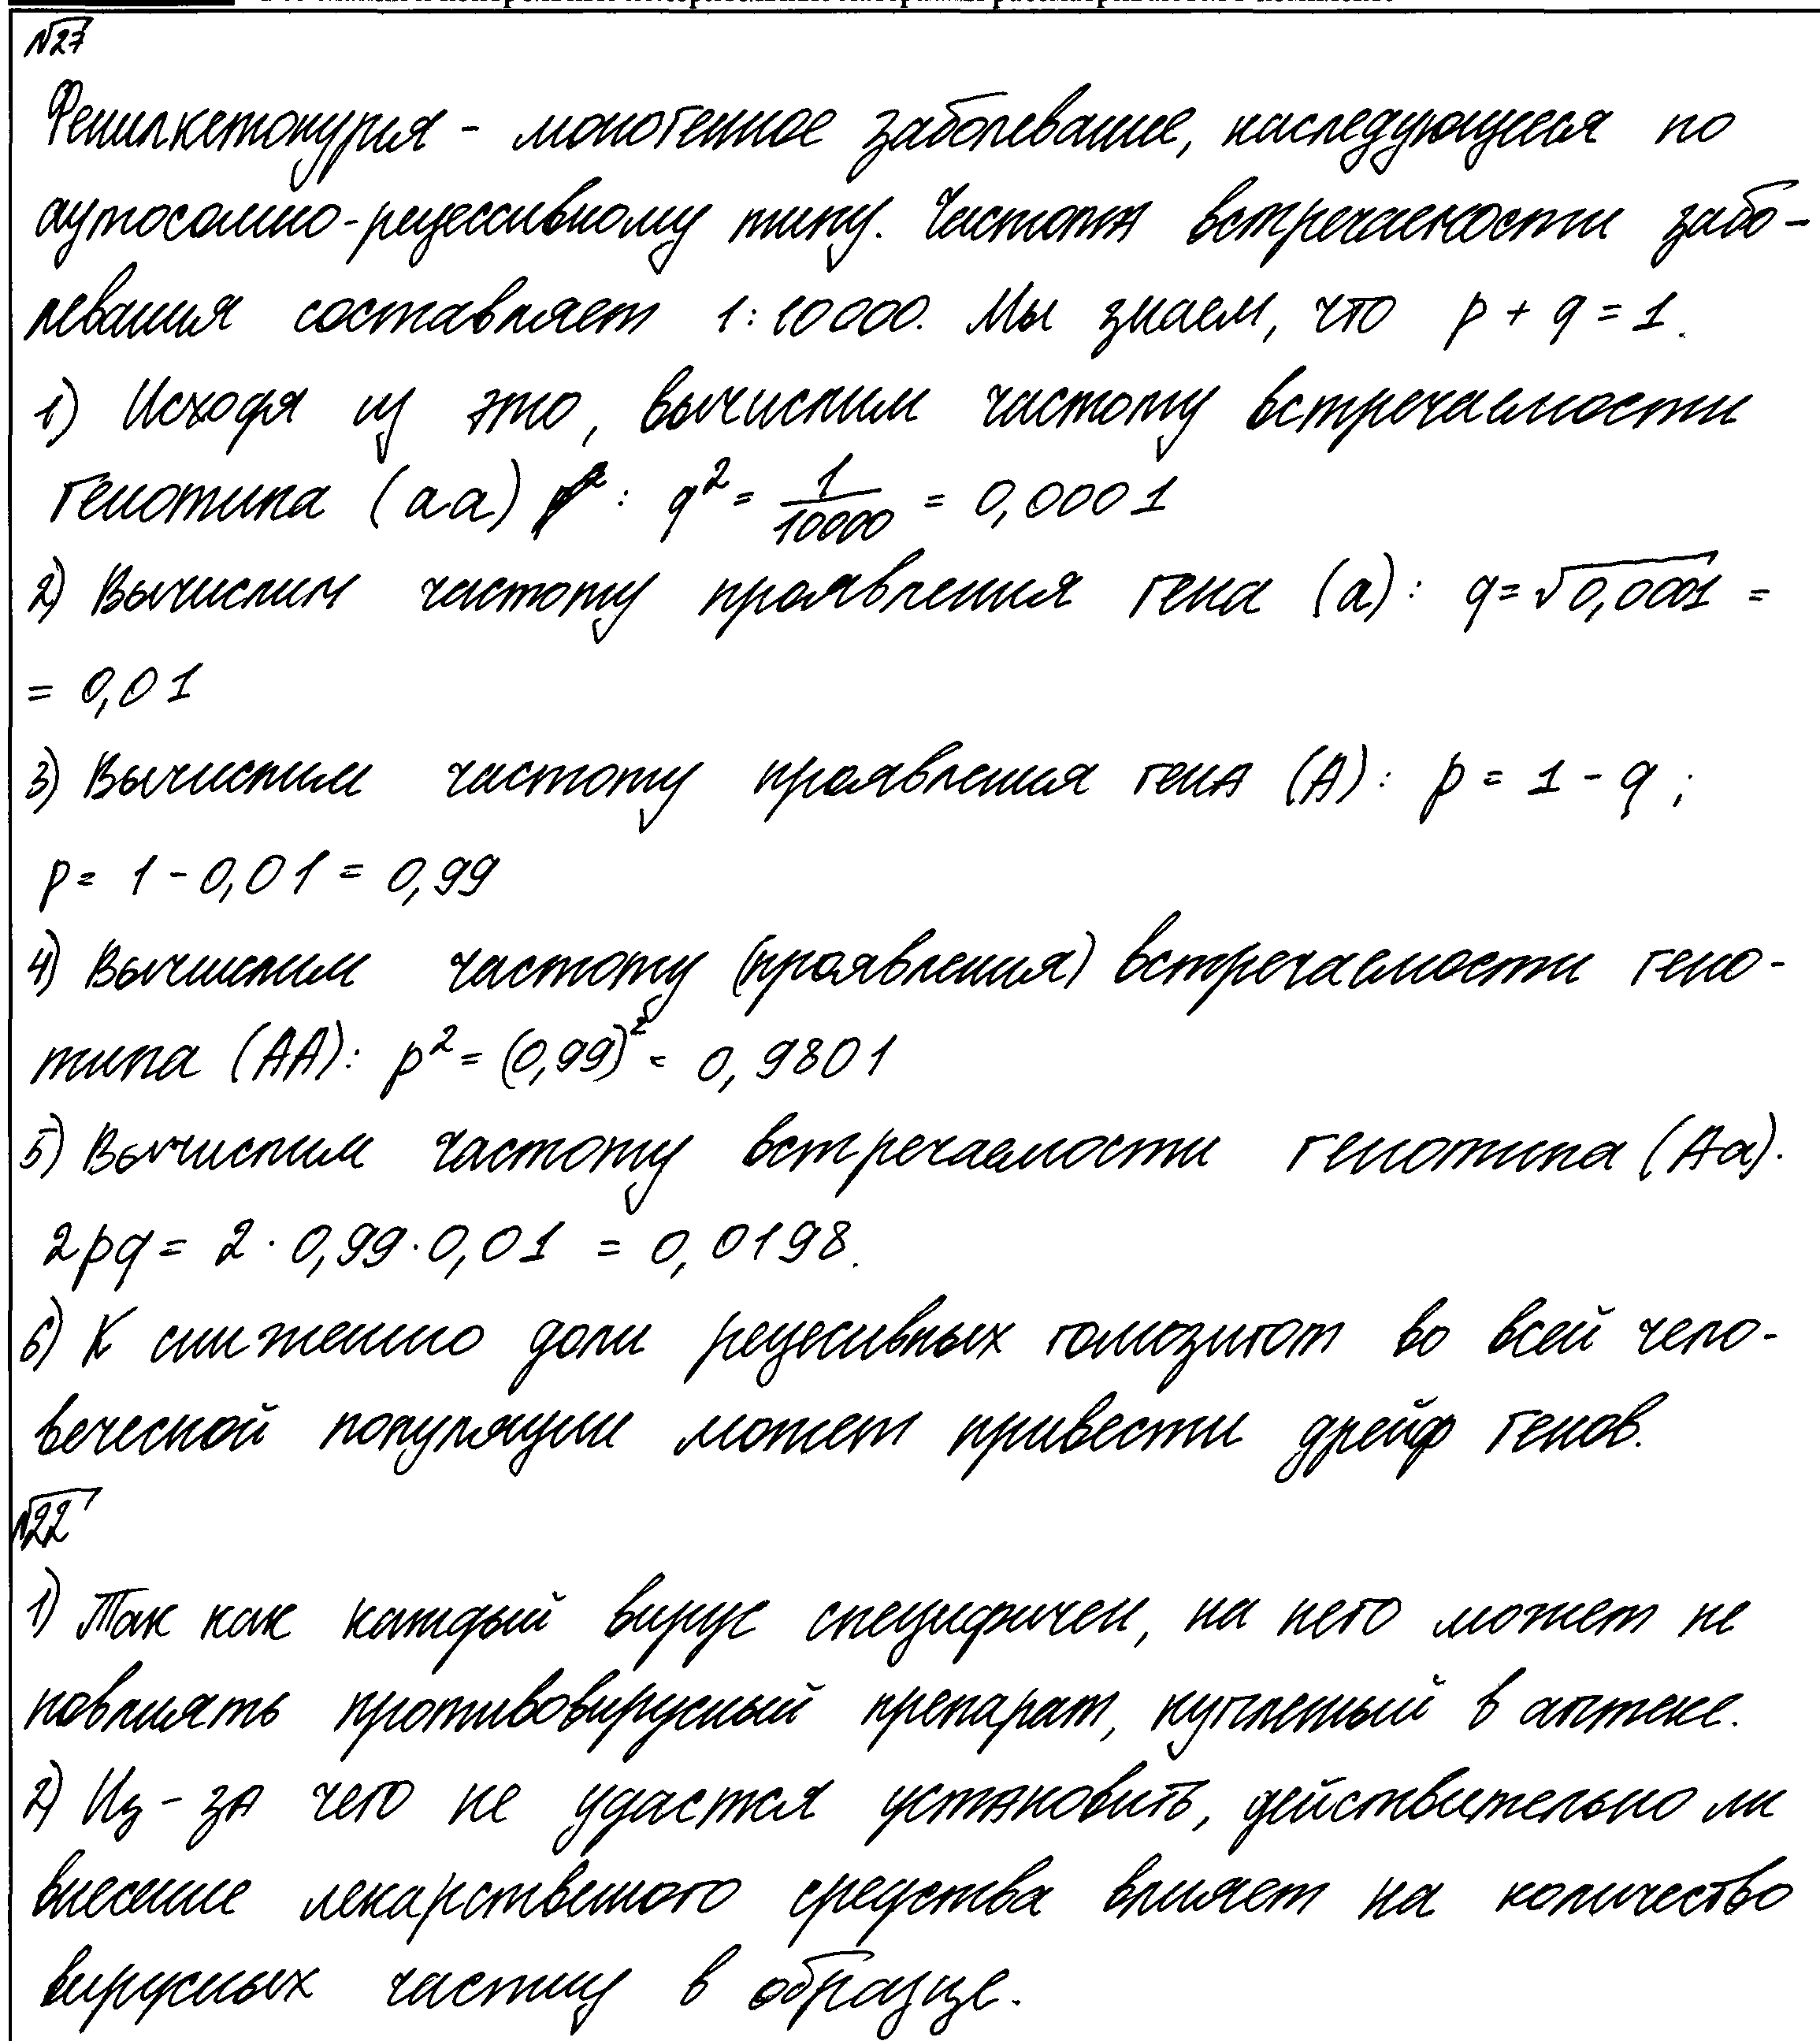 №27
Фенилкетонурия - моногенное заболевание, наследующееся по
аутосомно-рецессивному типу. Частота встречаемости забо-
левания составляет 1:10000. Мы знаем, что p + q = 1.
1) Исходя из это, вычислим частоту встречаемости
генотипа (аа) : q² = 1/10000 = 0,0001
2) Вычислим частоту проявления гена (а): q = √0,0001 =
= 0,01
3) Вычислим частоту проявления гена (А): p = 1 - q ;
p = 1 - 0,01 = 0,99
4) Вычислим частоту (проявления) встречаемости гено-
типа (АА): p² = (0,99)² = 0,9801
5) Вычислим частоту встречаемости генотипа (Аа).
2pq = 2 · 0,99 · 0,01 = 0,0198.
6) К снижению доли рецесивных гомозигот во всей чело-
веческой популяции может привести дрейф генов.
№22
1) Так как каждый вирус специфичен, на него может не
повлиять противовирусный препарат, купленный в аптеке.
2) Из-за чего не удастся установить, действительно ли
внесение лекарственного средства влияет на количество
вирусных частиц в образце.